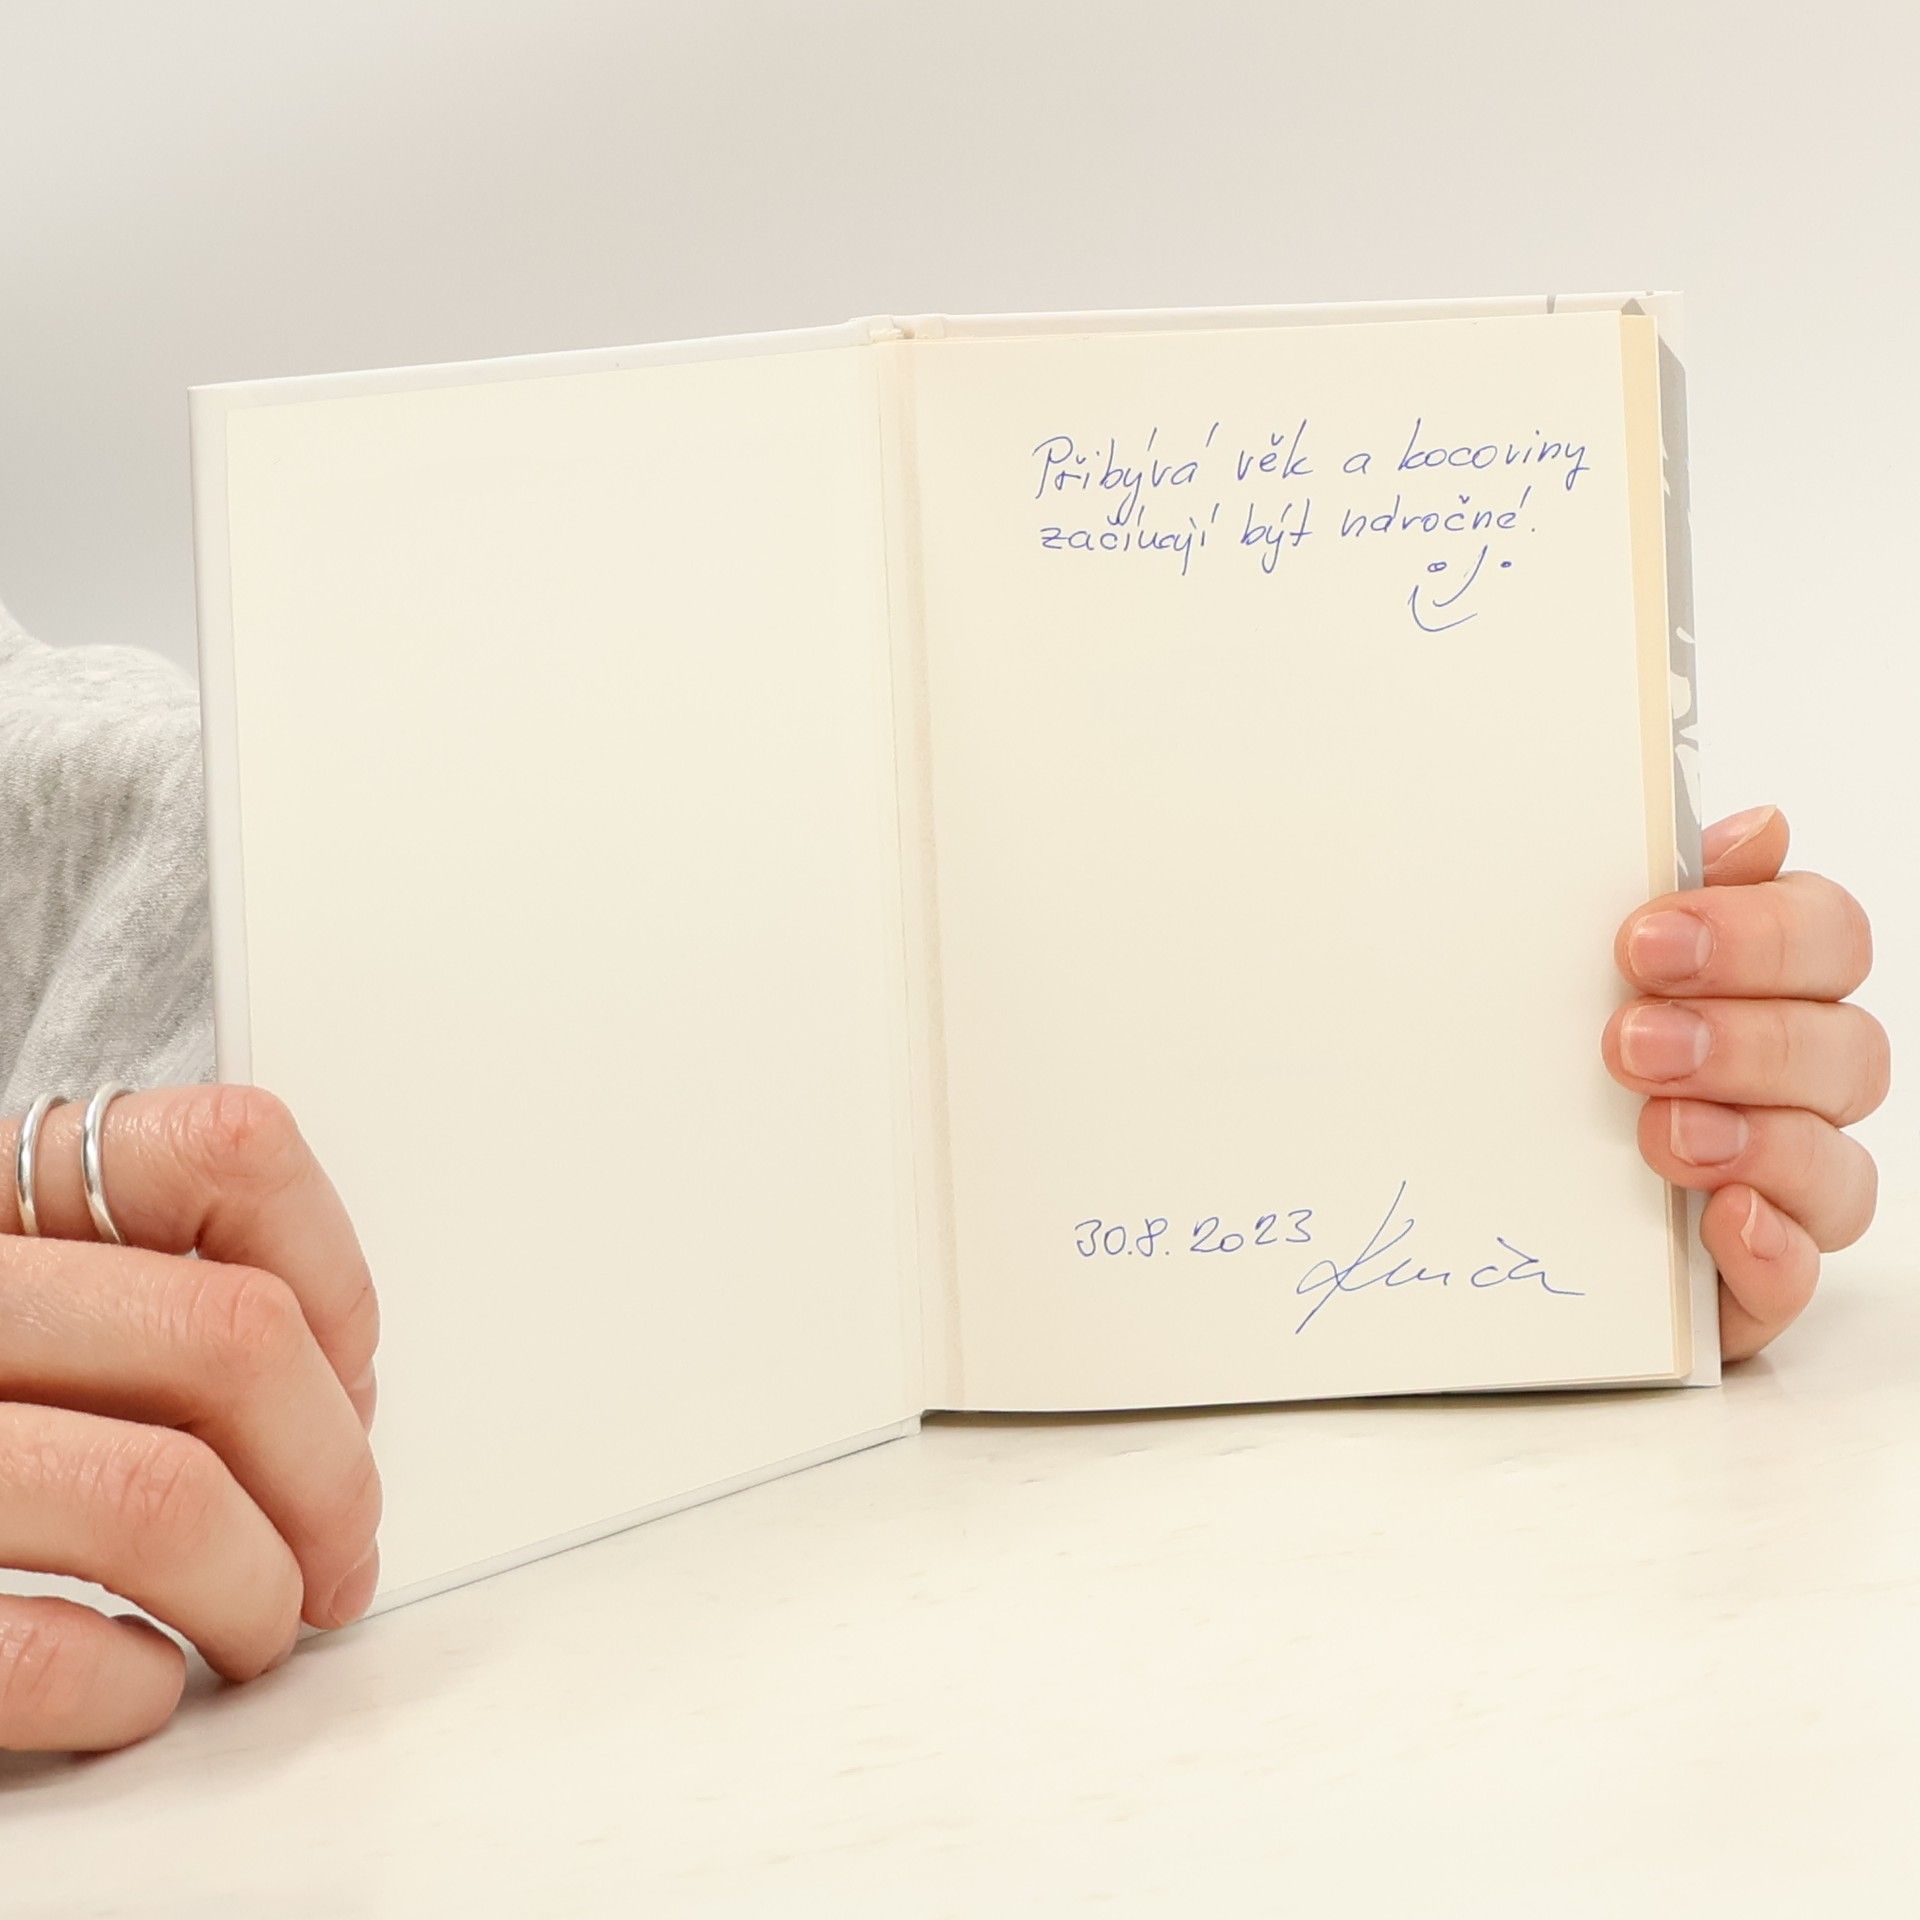 Přibývá věk a kocoviny
začínají být náročné.
30.8.2023